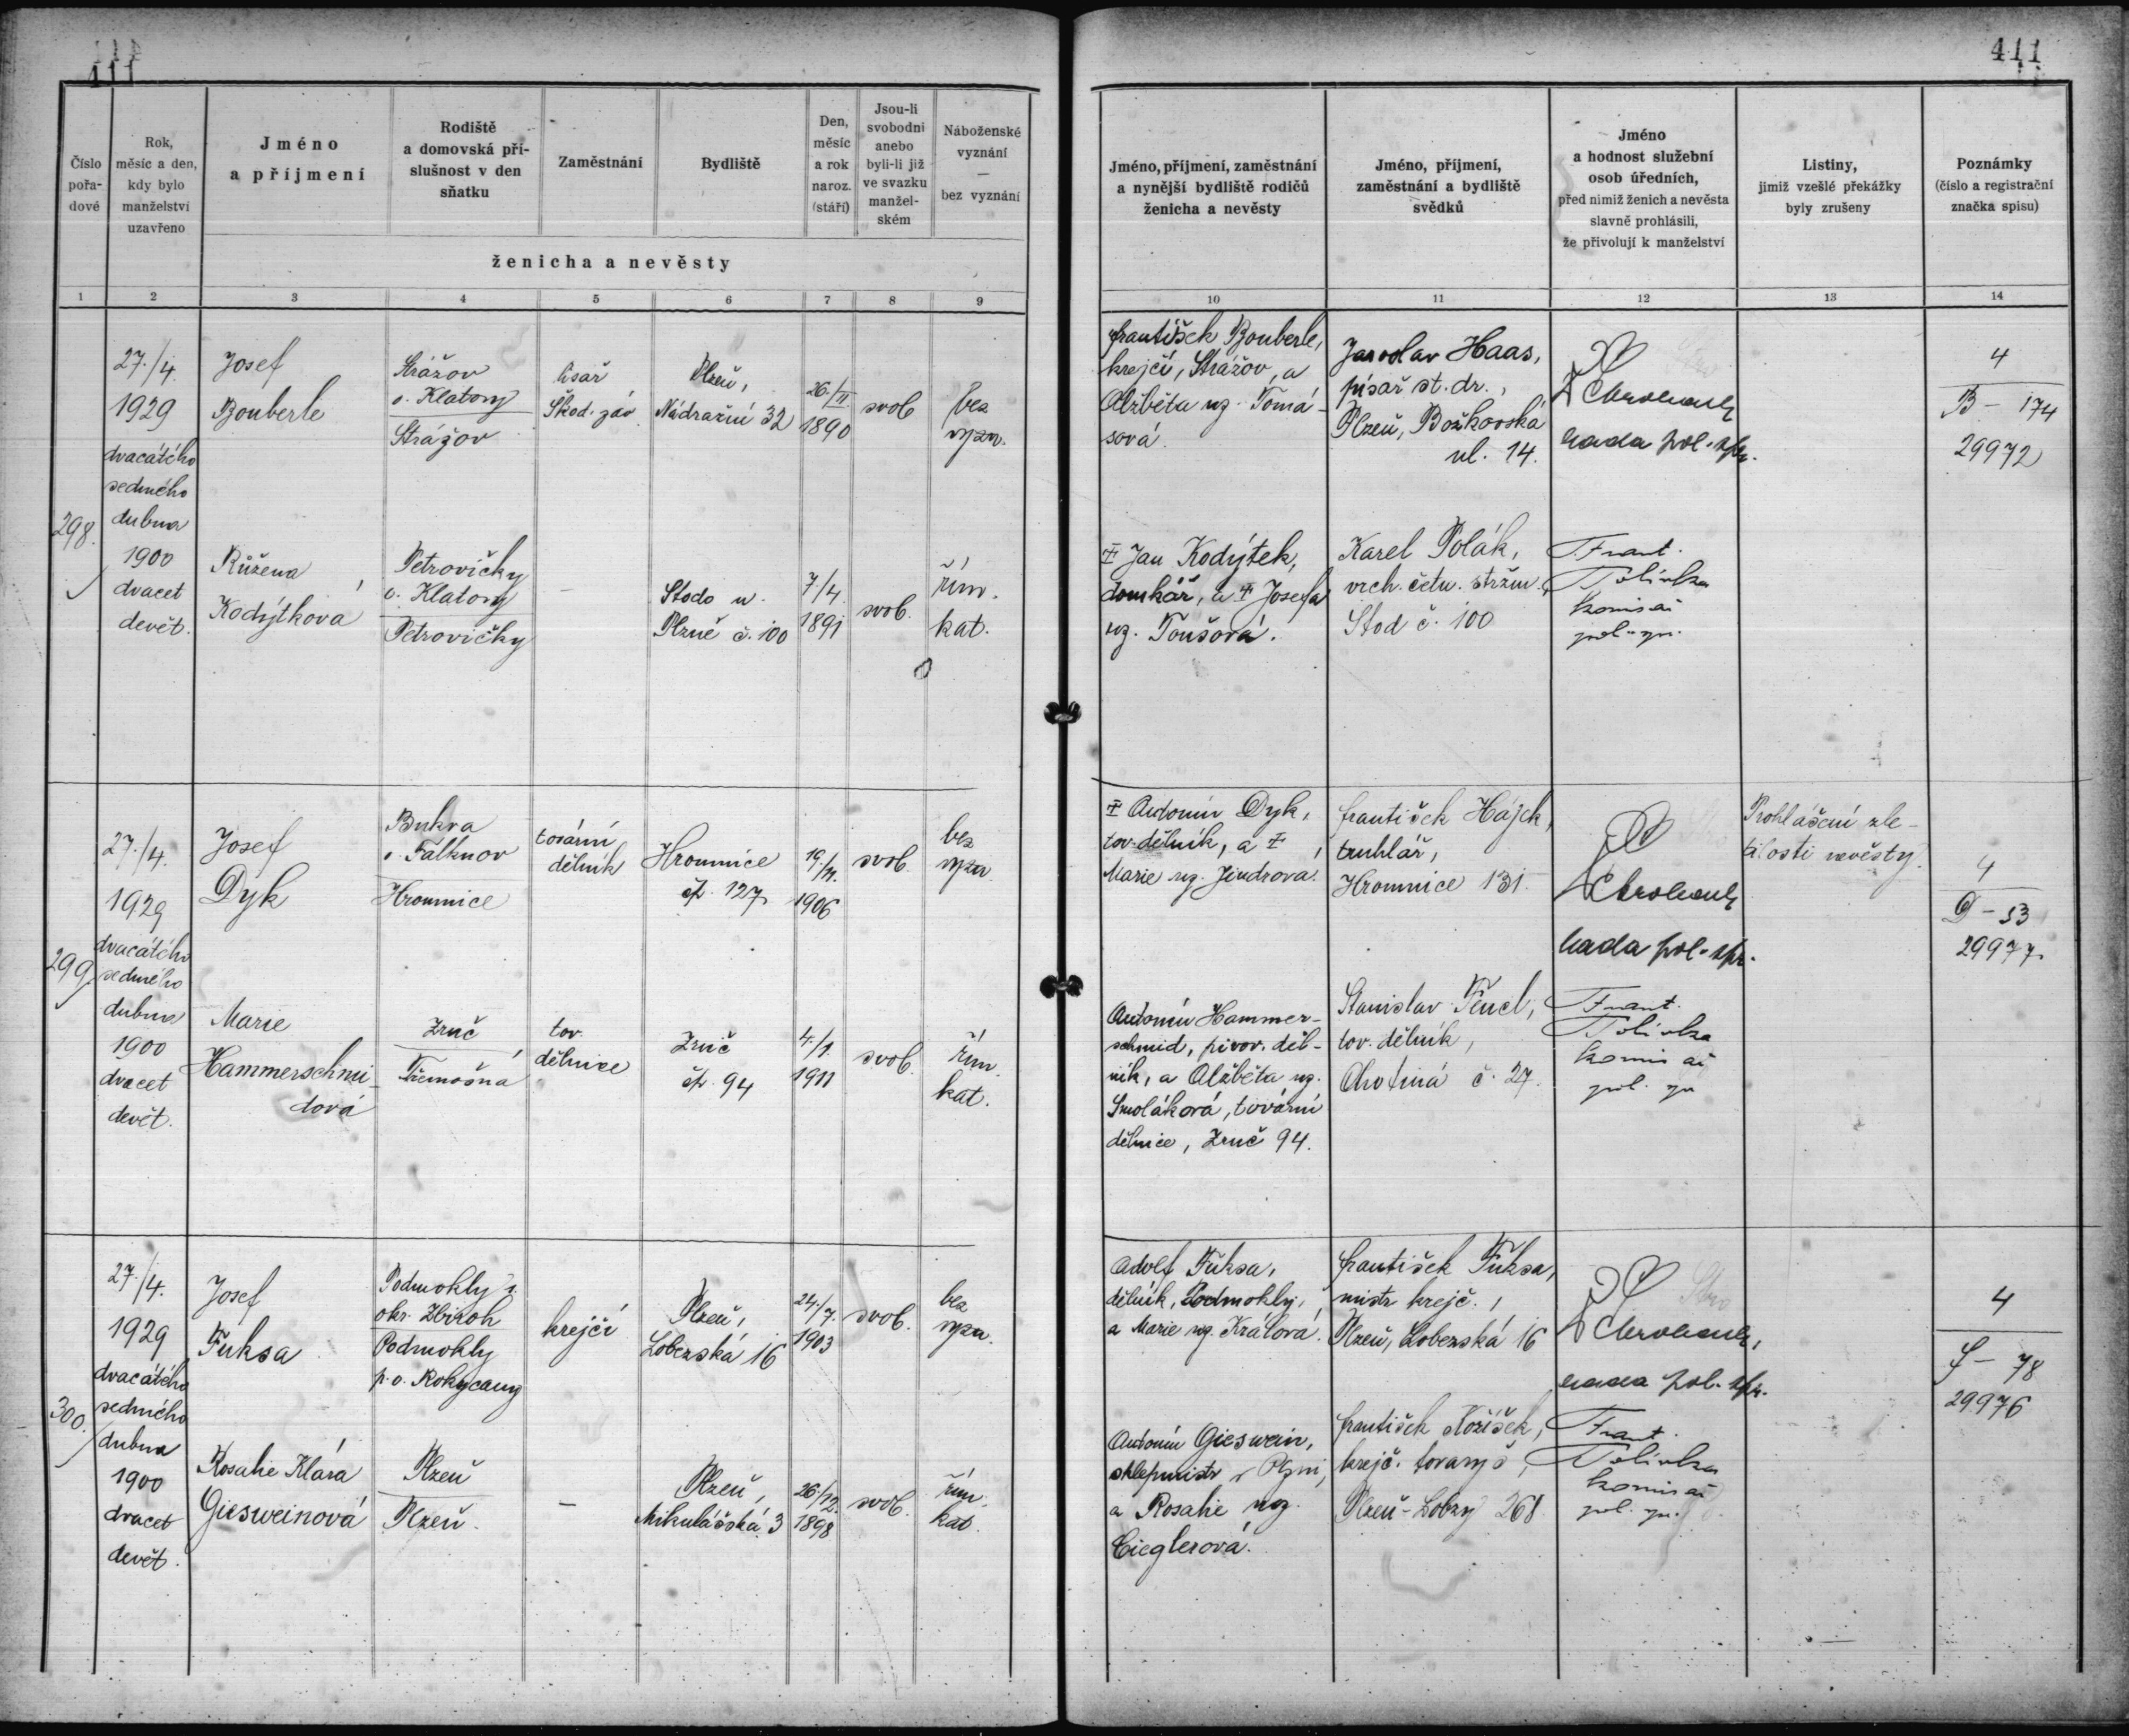 411
411
Číslo
pořa-
dové
Rok,
měsíc a den,
kdy bylo
manželství
uzavřeno
Jméno
a příjmení
Rodiště
a domovská pří-
slušnost v den
sňatku
Zaměstnání
Bydliště
Den,
měsíc
a rok
naroz.
(stáří)
Jsou-li
svobodni
anebo
byli-li již
ve svazku
manžel-
ském
Náboženské
vyznání
—
bez vyznání
ženicha a nevěsty
Jméno, příjmení, zaměstnání
a nynější bydliště rodičů
ženicha a nevěsty
Jméno, příjmení,
zaměstnání a bydliště
svědků
Jméno
a hodnost služební
osob úředních,
před nimiž ženich a nevěsta
slavně prohlásili,
že přivolují k manželství
Listiny,
jimiž vzešlé překážky
byly zrušeny
Poznámky
(číslo a registrační
značka spisu)
1 2 3 4 5 6 7 8 9 10 11 12 13 14
298.
27./4.
1929
dvacátého
sedmého
dubna
1900
dvacet
devět.
Josef
Bouberle
Strážov
o. Klatovy
Strážov
Škod. záv.
Plzeň,
Nádražní 32
26./II.
1890
svob
bez
vyzn.
František Bouberle,
krejčí, Strážov, a
Alžběta roz. Tomá-
sová.
Jaroslav Haas,
písař st. dr.,
Plzeň, Božkovská
ul. 14.
rada pol. spr.
4
B - 174
29972
Růžena
Kodýtková
Petrovičky
o. Klatovy
Petrovičky
—
Stodo u
Plzně č. 100
7./4.
1891
svob.
řím.
kat.
Jan Kodýtek,
domkář, a Josefa
roz. Toušová.
Karel Polák,
vrch. četn. stržm.,
Stod č. 100
Frant.
Polívka
komisař
pol. spr.
299.
27./4.
1929
dvacátého
sedmého
dubna
1900
dvacet
devět.
Josef
Dyk
Bukva
o. Falknov
Hromnice
tovární
dělník
Hromnice
čp. 127
1906
svob.
bez
vyzn.
Antonín Dyk,
tov. dělník, a
Marie roz. Jindrová.
František Hájek,
truhlář,
Hromnice 131.
rada pol. spr.
Prohlášení zle-
tilosti nevěsty.
4
D - 53
29977
Marie
Hammerschmi-
dová
Zruč
Třemošná
tov.
dělnice
Zruč
čp. 94
4./1.
1911
svob.
řím.
kat.
Antonín Hammer-
schmid, pivov. děl-
ník, a Alžběta roz.
Smoláková, tovární
dělnice, Zruč 94.
Stanislav Fencl,
tov. dělník,
Chotiná č. 27.
Frant.
Polívka
komisař
pol. spr.
300.
27./4.
1929
dvacátého
sedmého
dubna
1900
dvacet
devět.
Josef
Fuksa
Podmokly
okr. Zbiroh
Podmokly
p.o. Rokycany
krejčí
Plzeň,
Lobezská 16
24./7.
1903
svob.
bez
vyzn.
Adolf Fuksa,
dělník, Podmokly,
a Marie roz. Králová.
František Fuksa,
mistr krejč.,
Plzeň, Lobezská 16
rada pol. spr.
4
F - 78
29976
Rosalie Klára
Giesweinová
Plzeň
Plzeň.
—
Plzeň,
Mikulášská 3
26./12.
1898
svob.
řím.
kat.
Antonín Gieswein,
sklepmistr v Plzni,
a Rosalie roz.
Cieglerová.
František Nožíšek,
krejč. tovaryš,
Plzeň-Lobzy 268.
Frant.
Polívka
komisař
pol. spr.